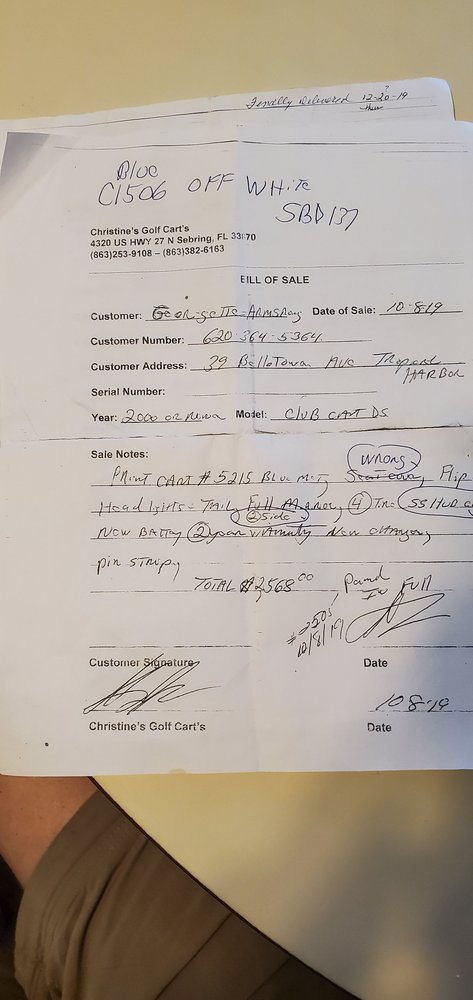 Finally Delivered 12-20-19
Blue
C1506 OFF WHITE
SBD137
Christine's Golf Cart's
4320 US HWY 27 N Sebring, FL 33870
(863)253-9108 – (863)382-6163
BILL OF SALE
Customer: Georgette Armstrong Date of Sale: 10-8-19
Customer Number: 620-364-5364
Customer Address: 39 Ave Tropical
HARBOR
Serial Number:
Year: 2000 or newer Model: CLUB CART DS
Sale Notes:
WRONG
PAINT CART # 5215 Blue Flip
Head lights - Tail Full (4) SS HUB
(2) Side
New (2) year warranty New
pin
TOTAL $2,568.00 Paid
In Full
$2505
10/8/19
Customer Signature Date
10-8-19
Christine's Golf Cart's Date